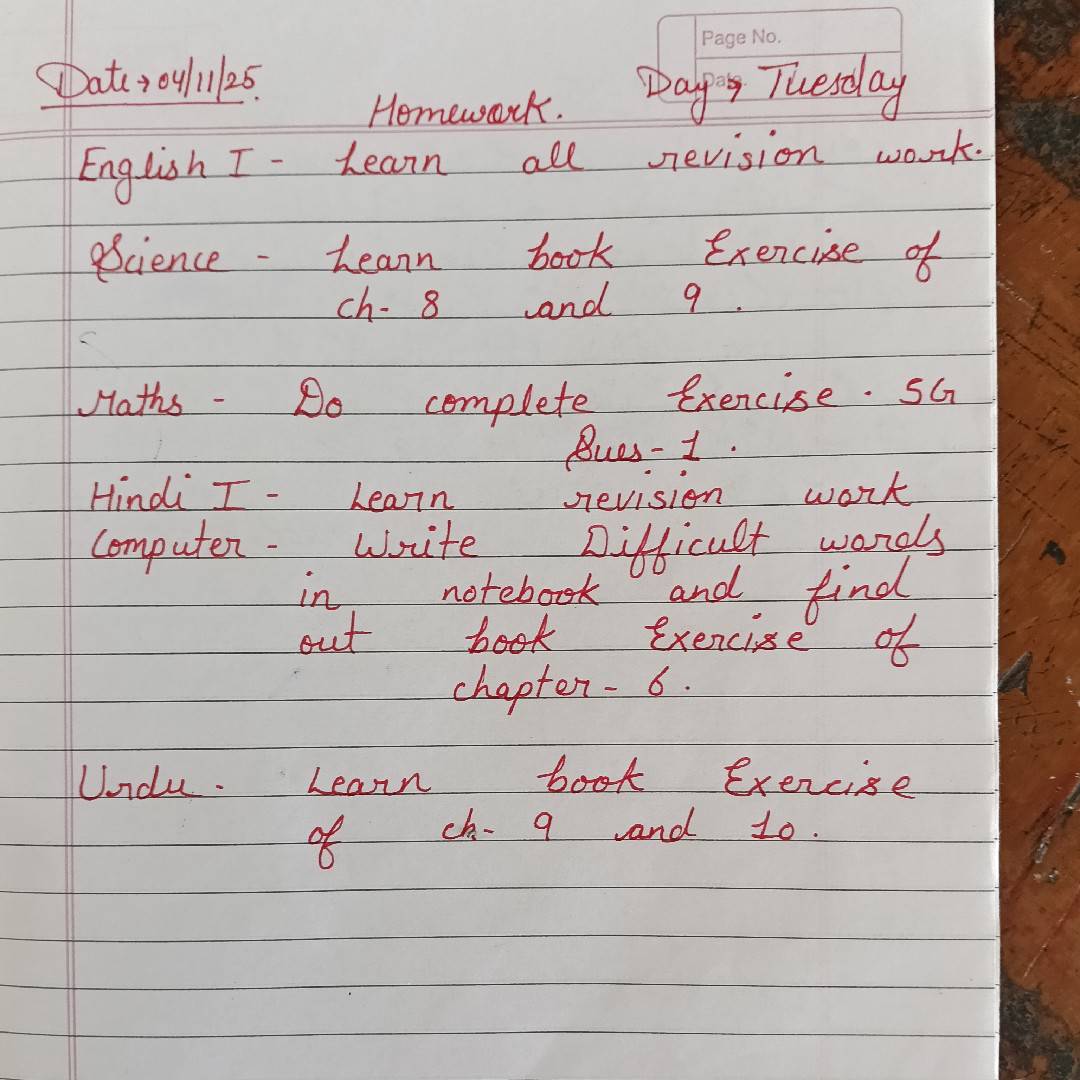 Page No.
Date → 04/11/25
Date.
Day → Tuesday
Homework.
English I - Learn all revision work.
Science - Learn book Exercise of
ch- 8 and 9.
Maths - Do complete Exercise. 5G
Ques- 1.
Hindi I - Learn revision work
Computer - Write Difficult words
in notebook and find
out book Exercise of
chapter - 6.
Urdu. Learn book Exercise
of ch- 9 and 10.